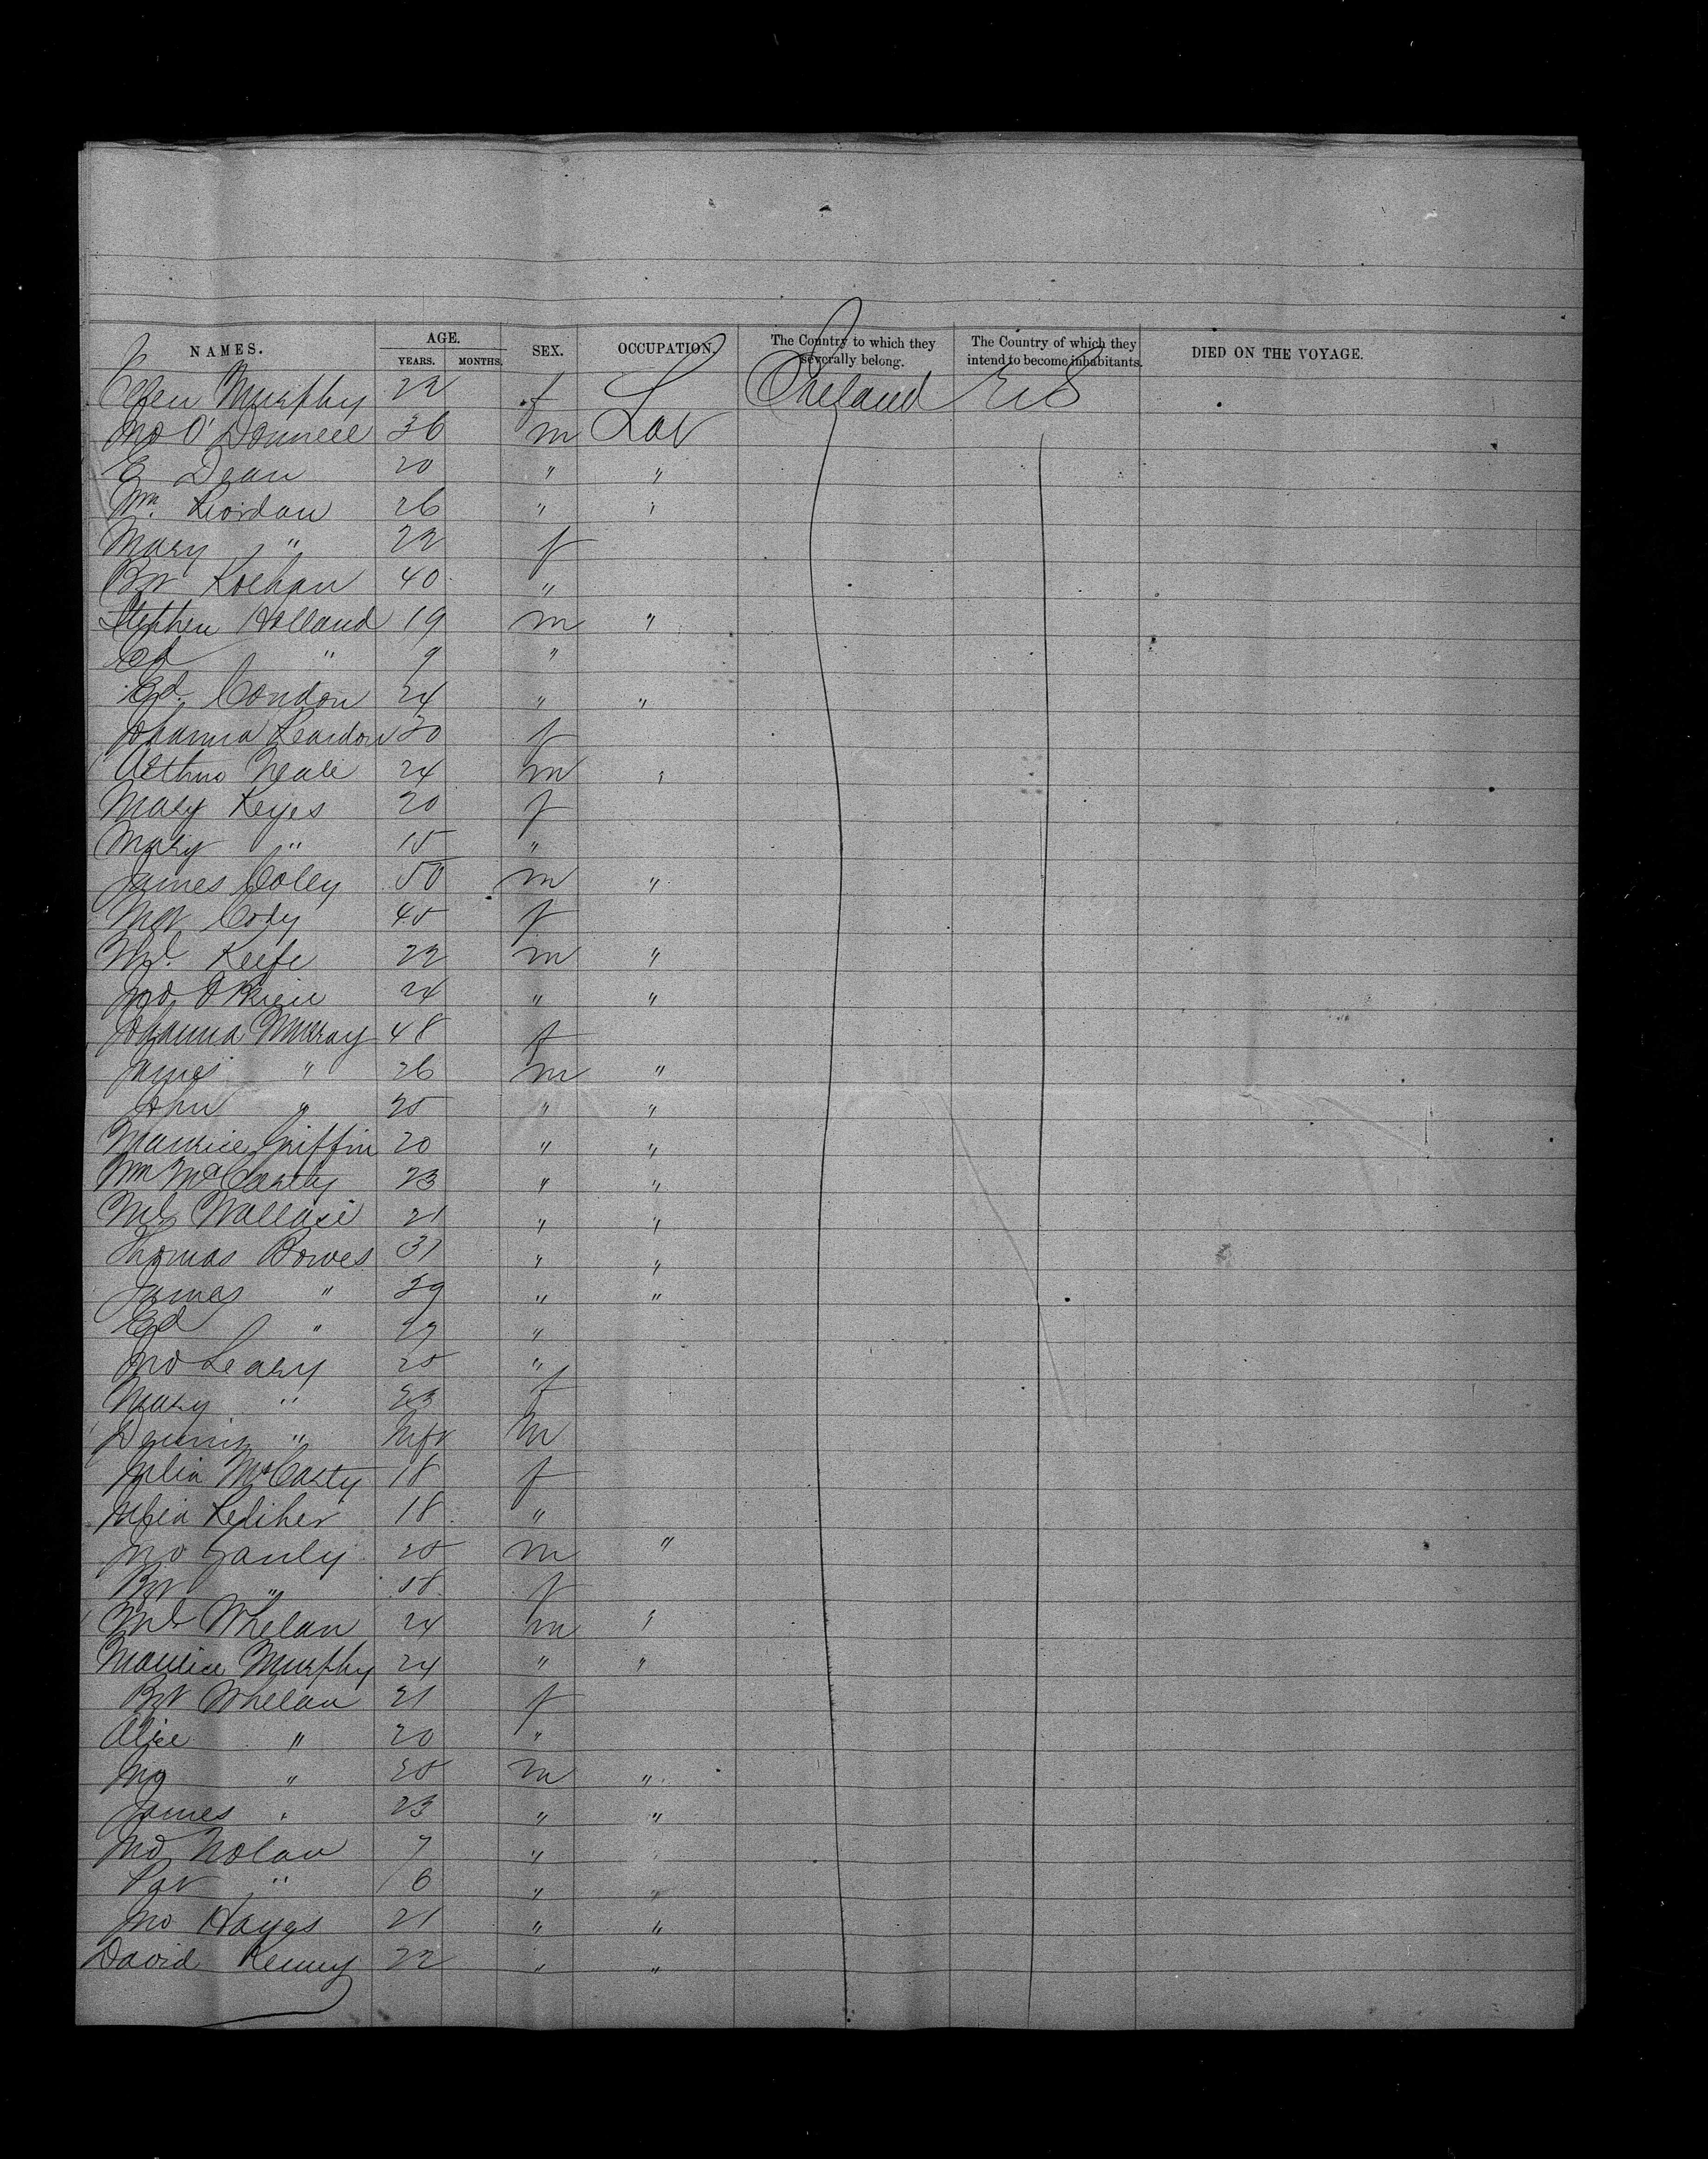 NAMES. AGE. YEARS. MONTHS. SEX. OCCUPATION. The Country to which they severally belong. The Country of which they intend to become inhabitants. DIED ON THE VOYAGE.
Ellen Murphy 22 f Ireland US
Jno O'Donnell 36 m Lab
E Dean 20 " "
Wm. Riordan 26 " "
Mary " 22 f
Bt 40 "
Stephen Holland 19 m "
Ed " 9 "
Ed. Condon 24 " "
Johanna Reardon 30 f
Arthur Neale 24 m "
Mary Keyes 20 f
Mary " 15 "
James Coley 50 m "
Mgt Cody 45 f
Ml. Keefe 22 m "
Jno O'Brien 24 " "
Johanna Murray 48 f
James " 26 m "
John " 25 " "
Maurice Griffin 20 " "
Wm McCarty 23 " "
Ml Wallace 21 " "
Thomas Bowes 31 " "
James " 29 " "
Ed " "
Jno Leary 25 "
Mary " 23 f
Dennis " Inft m
Julia McCarty 18 f
Julia Keliher 18 "
Jno Ganly 25 m "
Bt " 58 f
Ml Whelan 24 m "
Maurice Murphy 24 " "
Bt Whelan 21 f
Alice " 20 "
Jno " 25 m "
James " 23 " "
Jno Nolan 7 " "
Pat " 6 " "
Jno Hayes 21 " "
David Kenny 22 " "